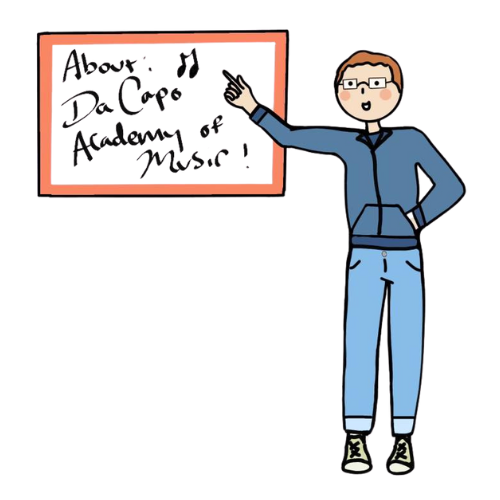 About: ♫
Da Capo
Academy of
Music!